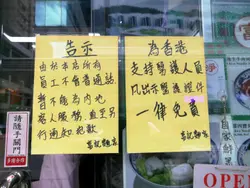 告示
由於本店所有
員工不會普通話,
暫不能為內地
客人服務,直至另
行通知。抱歉
為香港
支持醫護人員
凡出示醫護證件
一律免費
請隨手關門
多謝合作
OPE